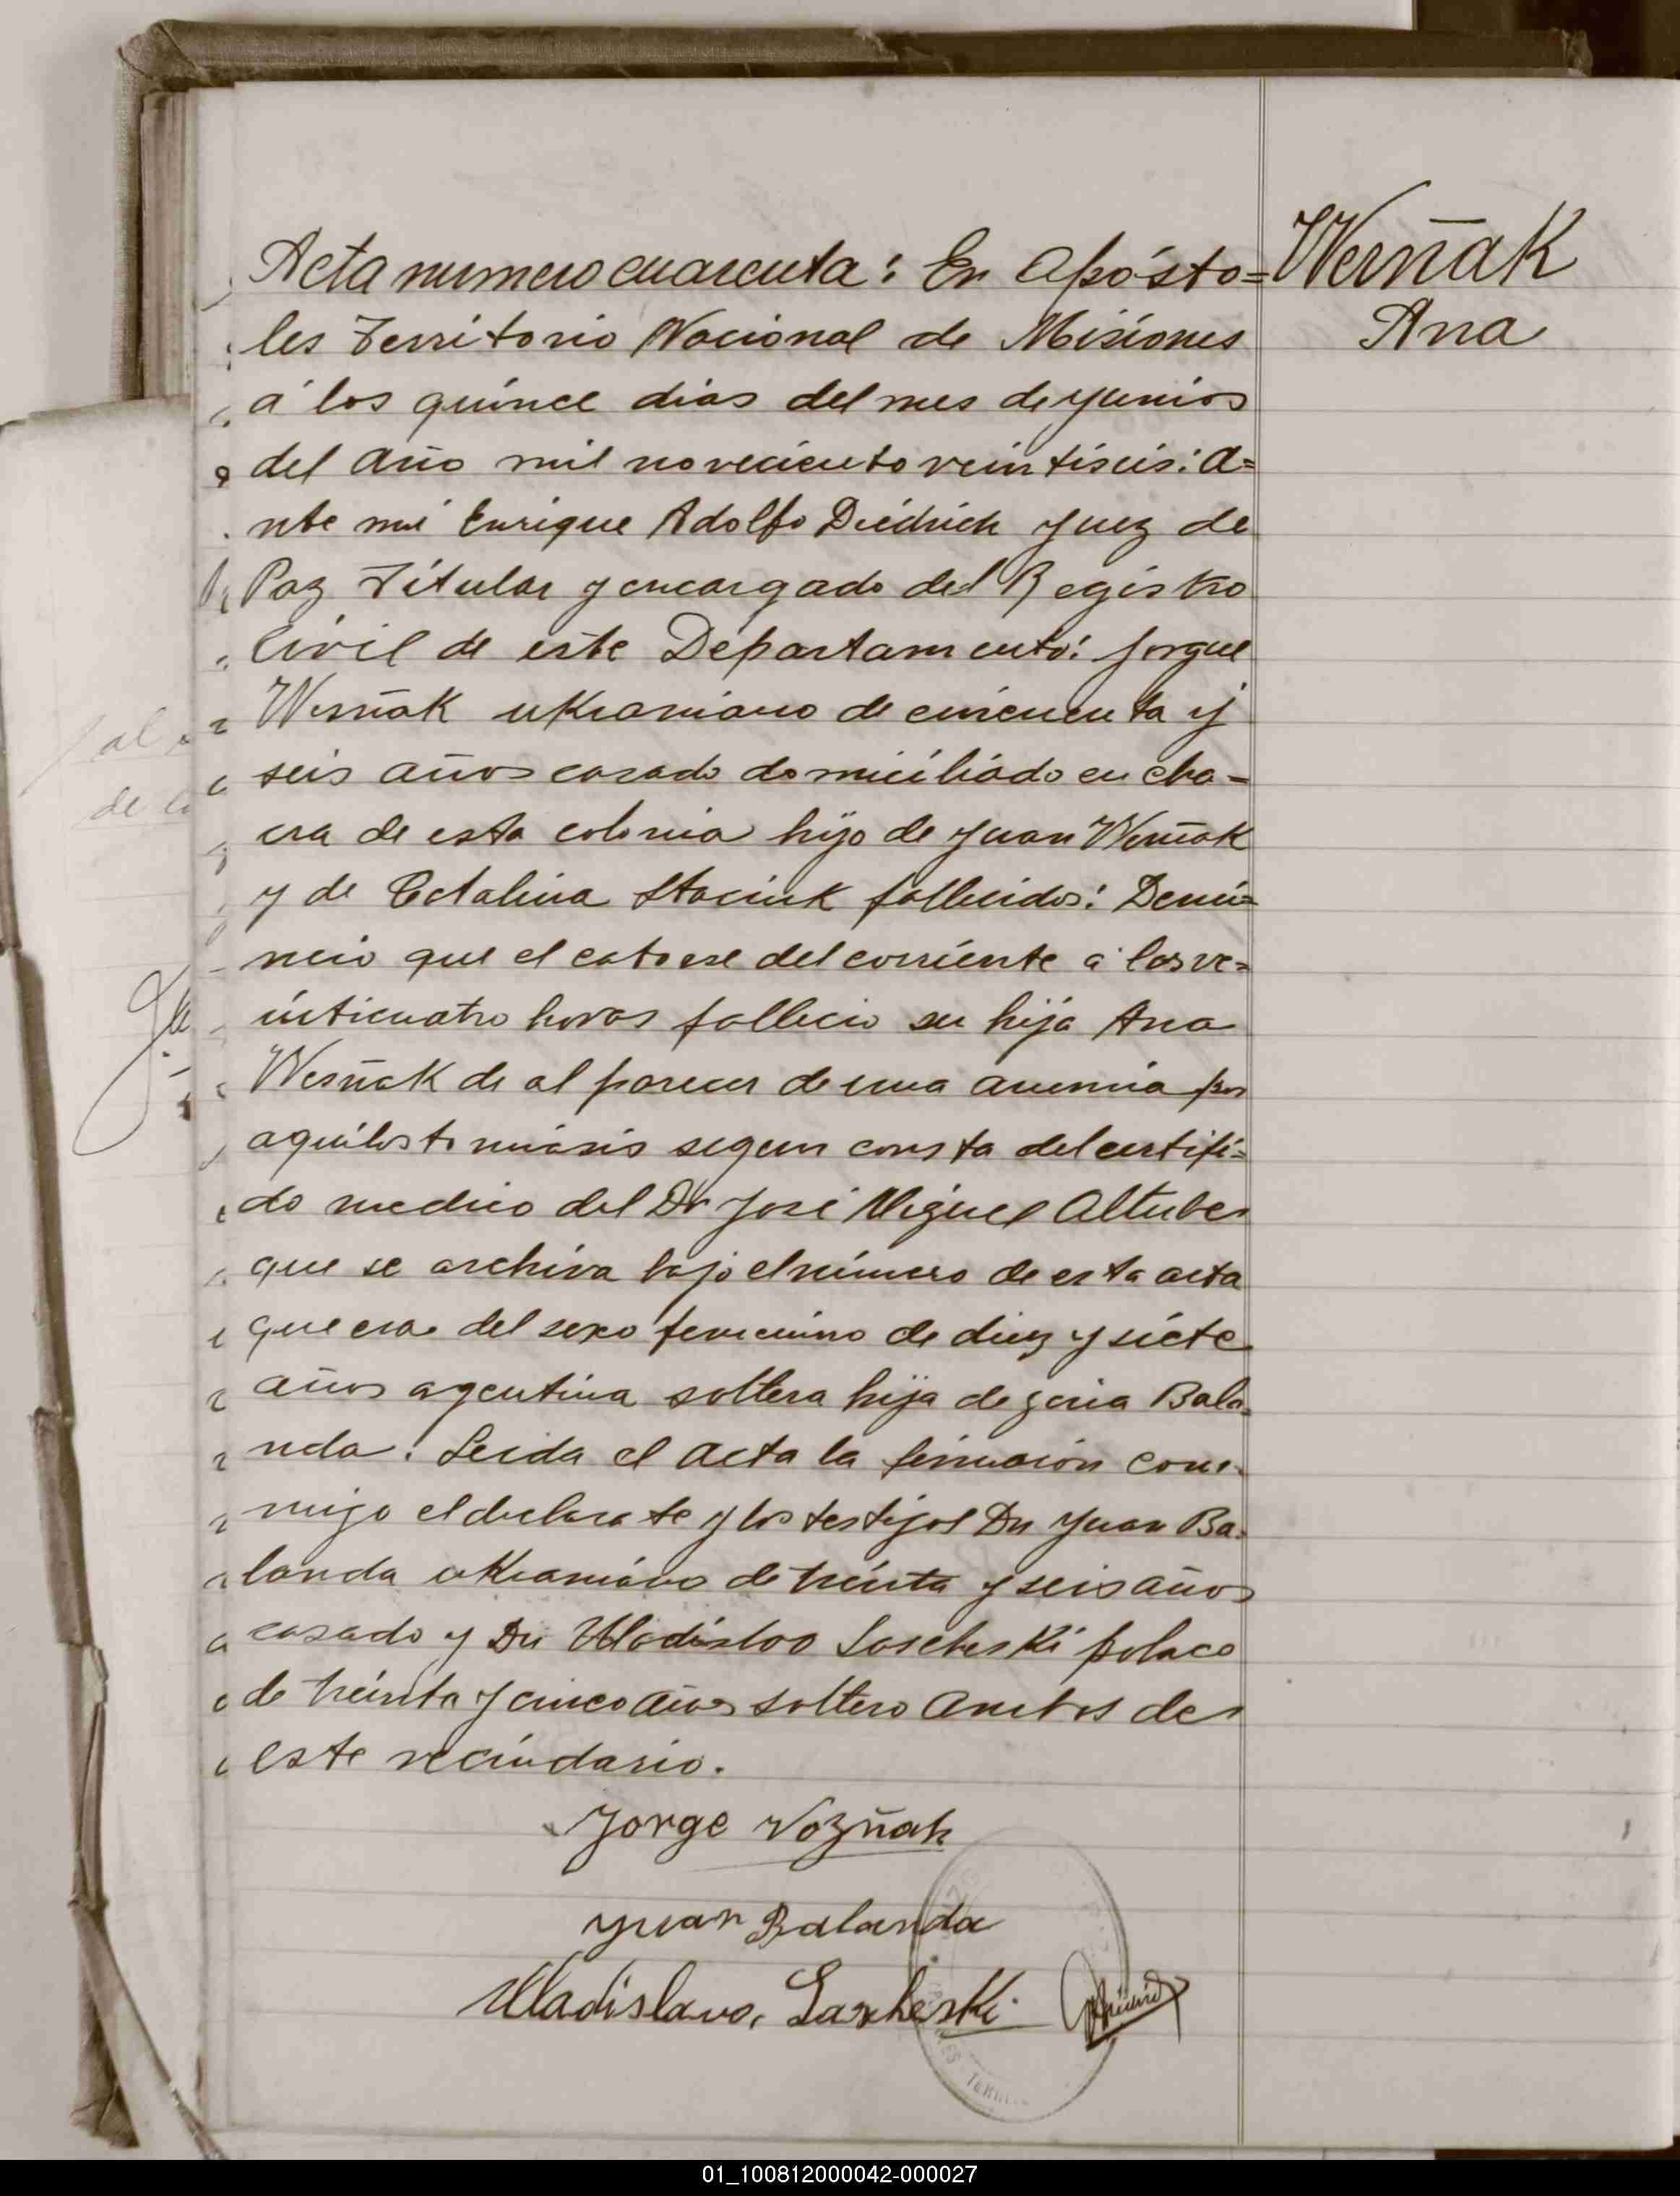 Acta numero cuarenta: En Apósto=
les Territorio Nacional de Misiones
á los quince dias del mes de yunios
del año mil noveciento veintiseis: A=
nte mi Enrique Adolfo Diedrich Juez de
Paz Titular y encargado del Registro
Civil de este Departamento: Jorgue
Wesñak ukraniano de cincuenta y
seis años casado domiciliado en cha=
cra de esta colonia hijo de Juan Wesñak
y de Catalina Staciuk fallecidos: Denú=
ncio que el catorse del corriente a las ve=
inticuatro horas fallecio su hija Ana
Wesñak de al parecer de una anemia por
aquilostomiásis segun consta del certifi=
do medico del Dr José Miguel Altube
que se archiva bajo el número de esta acta
que era del sexo femenino de diez y siete
años agentina soltera hija de Bala
nda: Leida el acta la firmarón con
migo el declarate y los testigos Dn Juan Ba
landa ukraniano de treinta y seis años
casado y Dn Uladislao Lascheski polaco
de treinta y cinco años soltero ambos de
este vecindario.
Jorge Vozñak
Yuan Balanda
Uladislavo, Lascheski
Werñak
Ana
al
de la
01_100812000042-000027